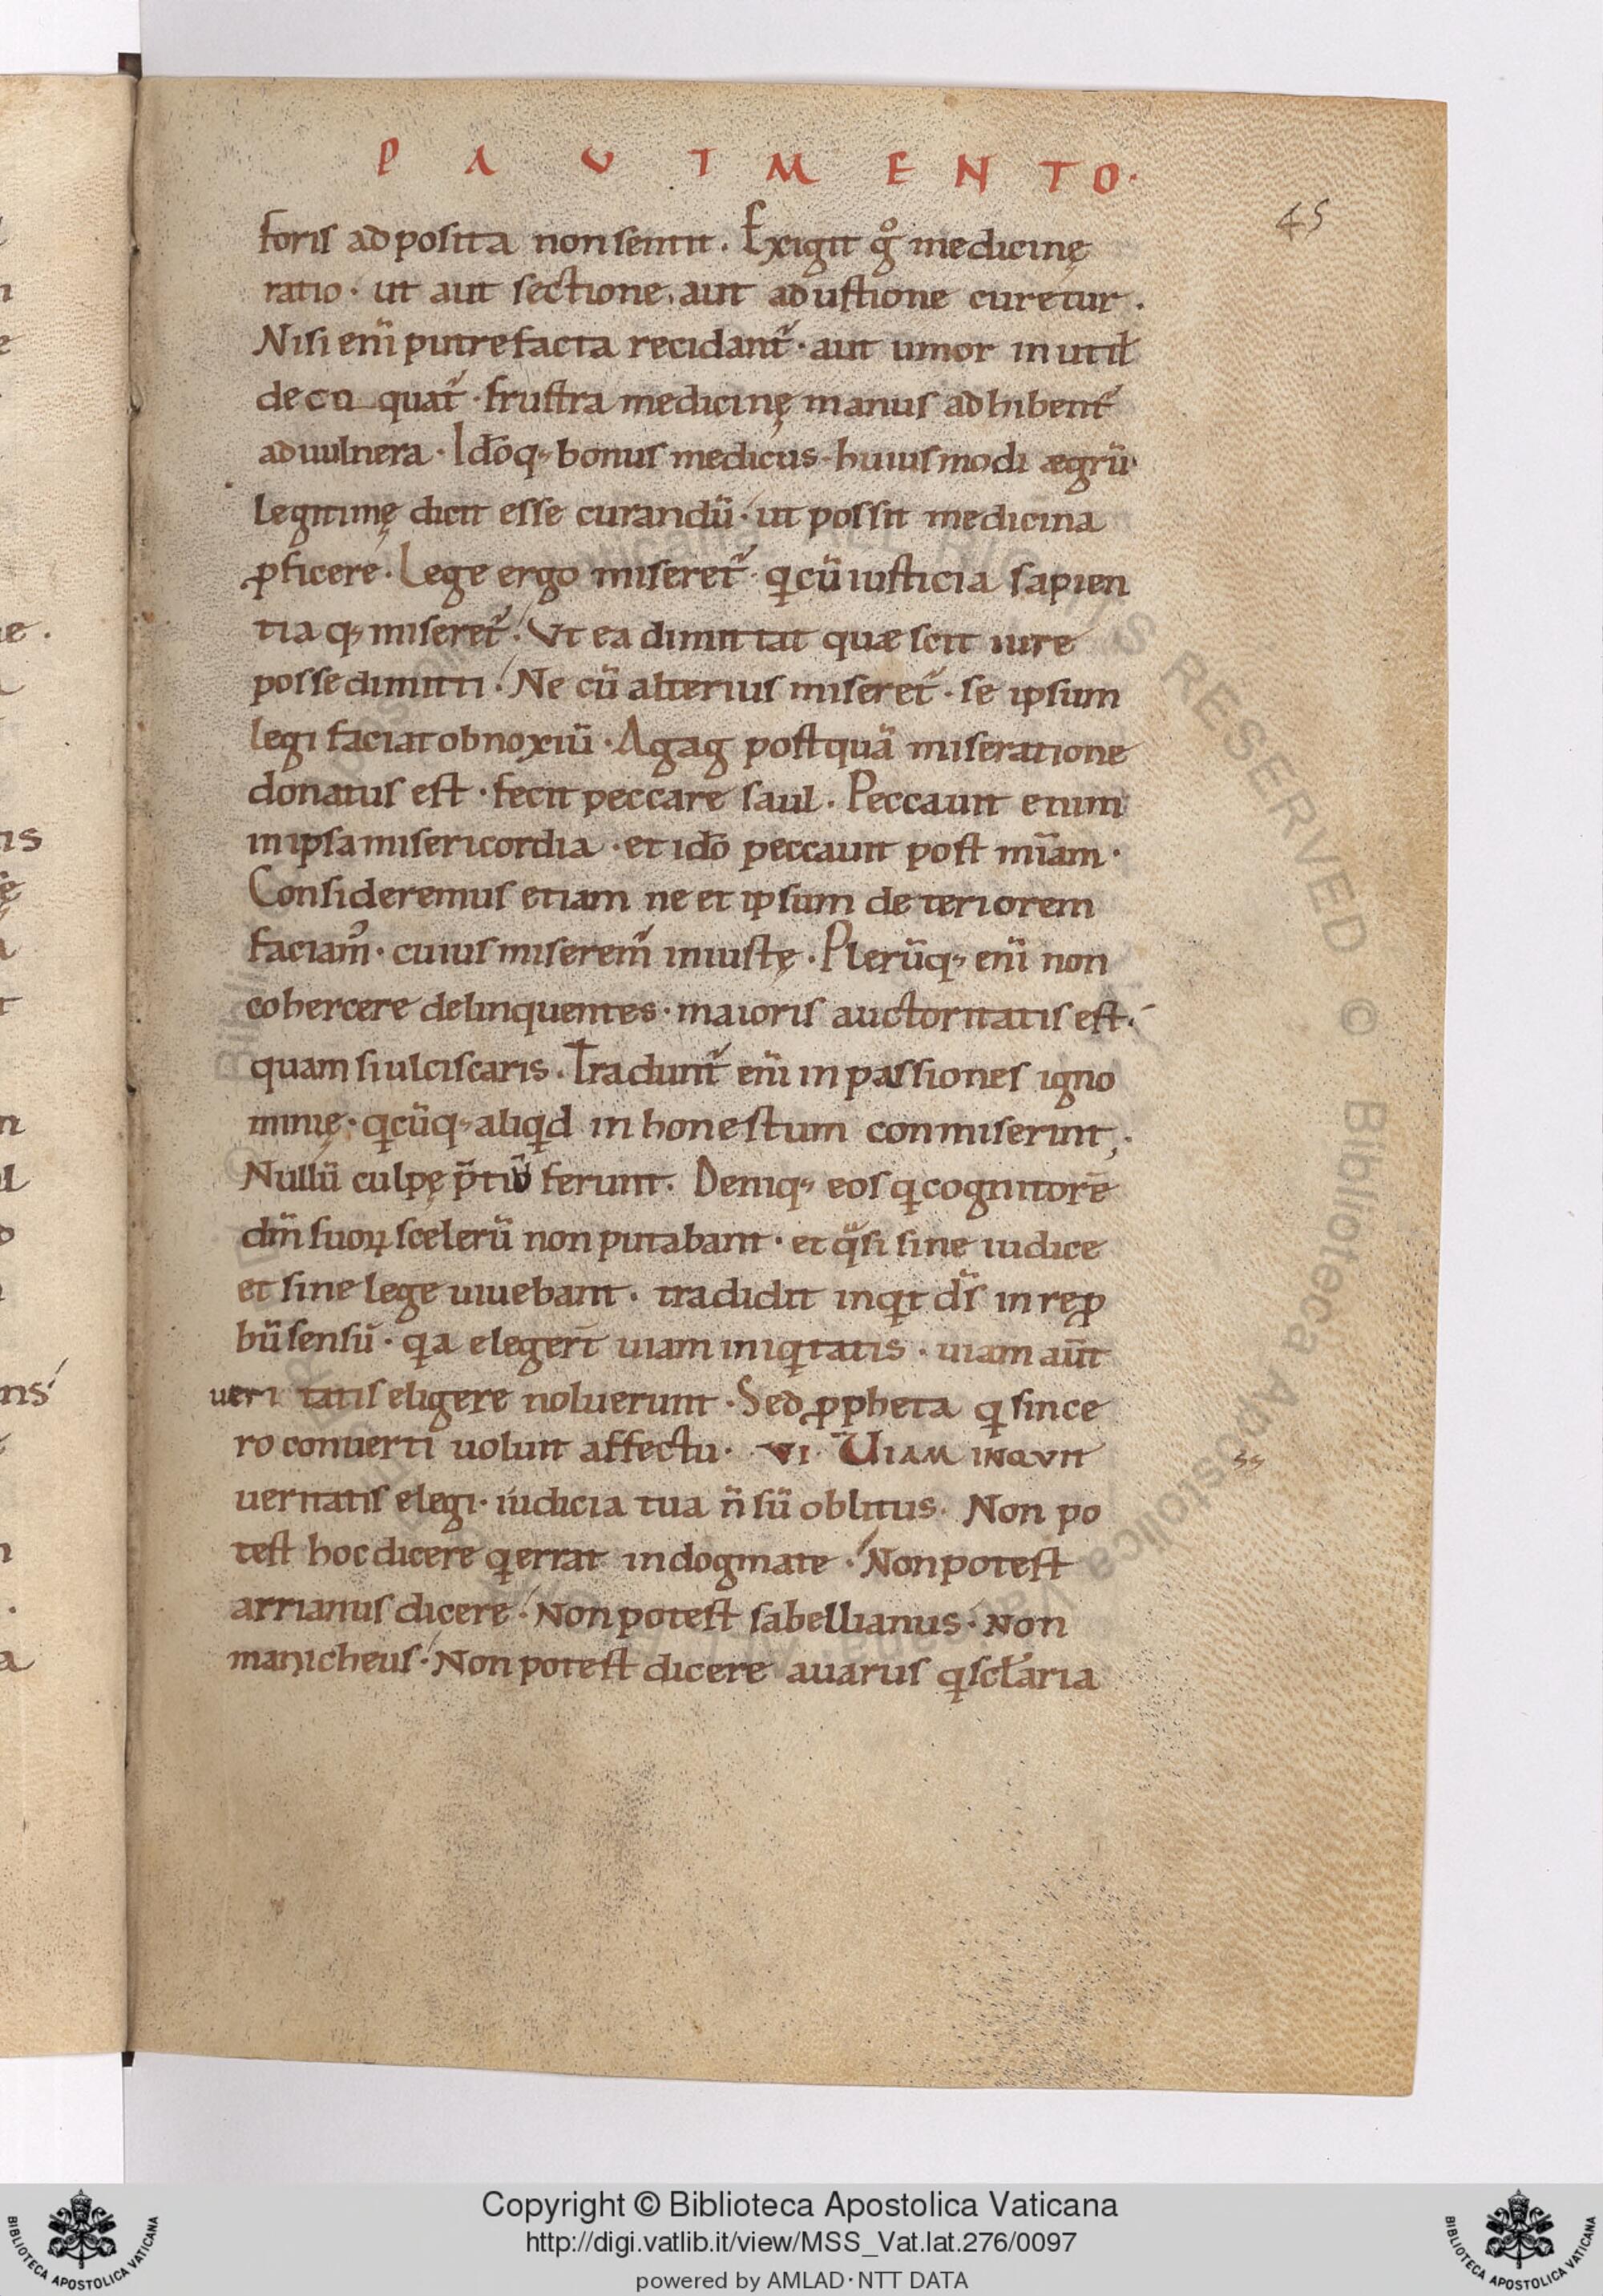 P A V I M E N T O ·
45
foris adposita non sentit . Exigit g̊ medicinę
ratio · ut aut sectione , aut adustione curetur .
Nisi eni̅ putrefacta recidant᷑ · aut umor inutil̅
decu quat᷑ · frustra medicinę manus adhibent᷑
aduulnera · Ido̅q; bonus medicus · huiusmodi ægru̅
legitimę dicit esse curandu̅ · ut possit medicina
ꝓficere · Lege ergo miseret᷑ · q̇cu̅ iusticia sapien
tiaq; miseret᷑ · Vt ea dimittat quæ scit iure
posse dimitti · Ne cu̅ alterius miseret᷑ · se ipsum
legi faciat obnoxiu̅ · Agag postqua̅ miseratione
donatus est · fecit peccare saul . Peccauit enim
in ipsa misericordia · et ido̅ peccauit post mi̅am ·
Consideremus etiam ne et ipsum deteriorem
faciam᷒ · cuius miserem᷑ iniustę · Pleru̅q; eni̅ non
cohercere delinquentes · maioris auctoritatis est ·
quam si ulciscaris . Tradunt᷑ eni̅ in passiones igno
minię · q̇cu̅q; aliq̇d inhonestum conmiserint ,·
Nullu̅ culpę p̅tiu̅ ferunt . Deniq; eos q̇ cognitore̅
dn̅i suoꝝ sceleru̅ non putabant · et q̈si sine iudice
et sine lege uiuebant . tradidit inq̇t ds̅ in reꝓ
bu̅ sensu̅ · q̇a elegert̅ uiam iniq̇tatis · uiam aut̅
ueritatis eligere noluerunt · Sed ꝓpheta q̇ since
ro conuerti uolunt affectu · VI · UIAM INQVIT
ueritatis elegi · iudicia tua n̅ su̅ oblitus . Non po
test hoc dicere q̇ errat in dogmate · Non potest
arrianus dicere · Non potest sabellianus · Non
manicheus · Non potest dicere auarus q̇ scł̅aria
Copyright © Biblioteca Apostolica Vaticana
http://digi.vatlib.it/view/MSS_Vat.lat.276/0097
powered by AMLAD · NTT DATA
BIBLIOTECA APOSTOLICA VATICANA
BIBLIOTECA APOSTOLICA VATICANA